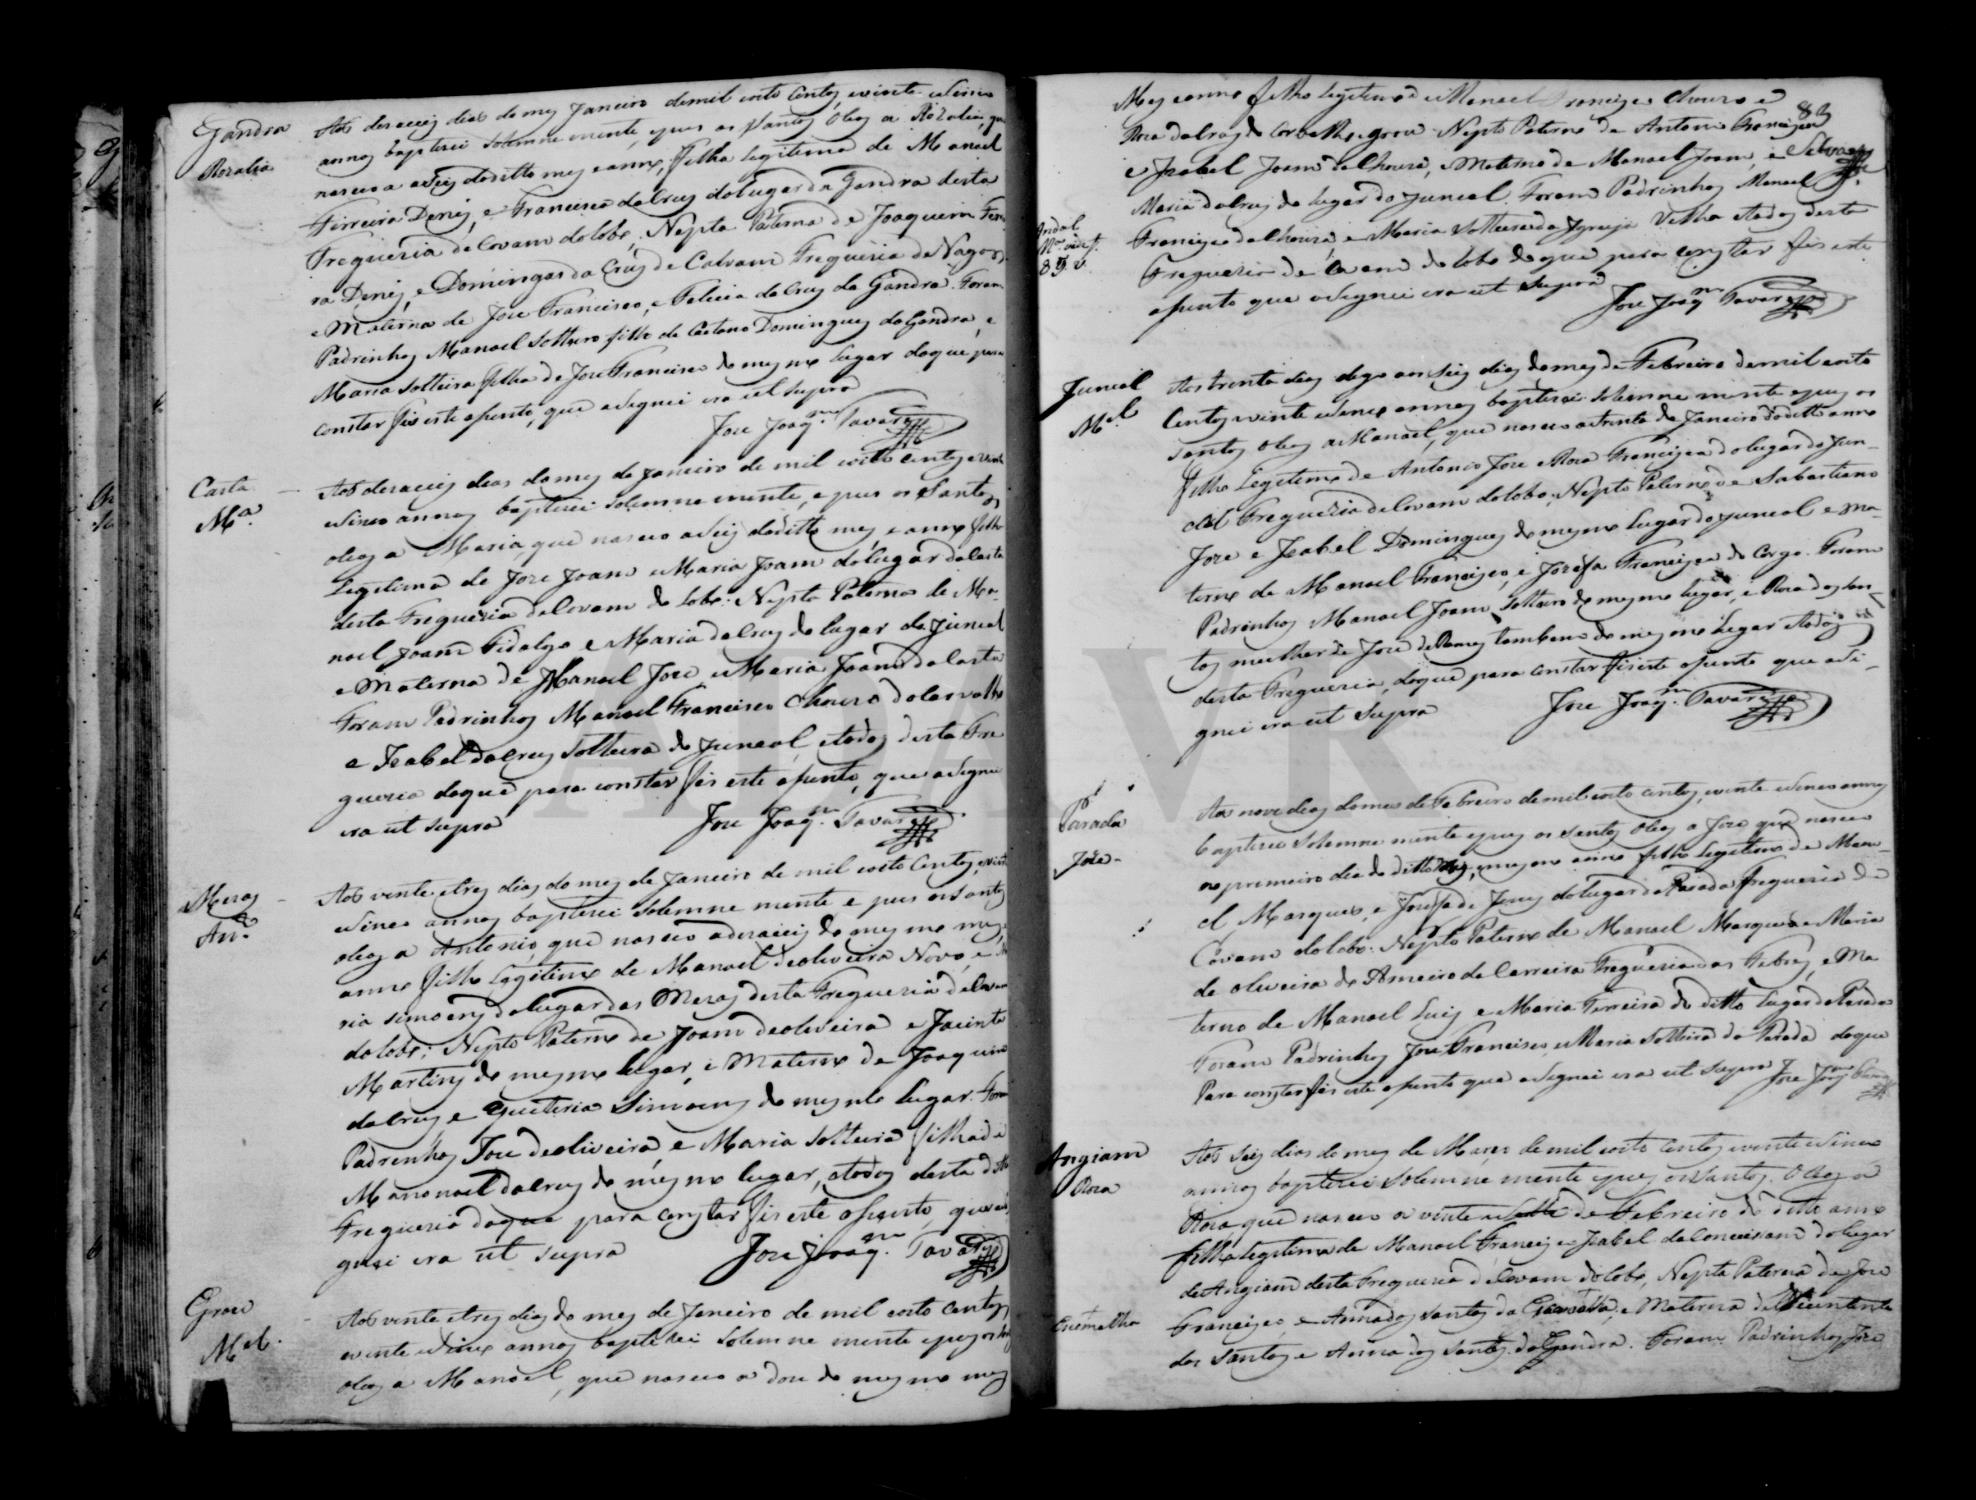 Gandra
Rozalia
Aos dezaceis dias do mez Janeiro demil oito Centos, evinte esinco
annos baptizei Solemne mente, epus os Santos Oleos a Rozalia, que
nasceo a Seis doditto mez e anno; Filha Legitima de Manoel
Ferreira Deniz, e Francisca daCruz doLugar da Gandra desta
Freguezia deCovam doLobo; Nepta Paterna de Joaquim Ferrei
ra Deniz, e Domingas da Cruz de Calvam Freguezia de Vagos,
e Materna de Joze Francisco, e Felicia daCruz da Gandra. Foram
Padrinhos Manoel Solteiro filho de Caetano Domingues da Gandra, e
Maria Solteira filha de Joze Francisco do mesmo Lugar doque para
constar fis este aSento, que aSignei era ut Supra
Joze Joaqm. Tavares
Carta
Ma.
Aos dezaceis dias domez de Janeiro de mil oitto Centos evinte
eSinco annos baptizei Solemne mente, e pus os Santos
oleos a Maria, que nasceo aSeis doditto mez, e anno filha
Legitima de Joze Joam eMaria Joam doLugar da
desta Freguezia deCovam do Lobo: Nepta Paterna de Ma-
noel Joam Fidalgo e Maria daCruz do Lugar do Juncal
e Materna de Manoel Joze, e Maria Joam da
Foram Padrinhos Manoel Francisco Chouro do
e Izabel daCruz Solteira do Juncal, etodos desta Fre
guezia doque para constar fis este aSento, que aSignei
era ut Supra
Joze Joaqm. Tavares
Mezas
Anto.
Aos vente etres dias do mez de Janeiro de mil oito Centos, evinte
eSinco annos baptizei Solemne mente e pus osSantos
oleos a Antonio, que nasceo adezaceis do mesmo mez, e
anno filho Legitimo de Manoel deoliveira Novo, e Ma
ria Simoens doLugar das Mezas desta Freguezia deCovam
doLobo; Nepto Paterno de Joam deoliveira e Jacinta
Martins do mesmo Lugar, e Materno de Joaquim
daCruz e Quiteria Simoens do mesmo Lugar. Foram
Padrinhos Joze deoliveira, e Maria Solteira filha de
Manonoel daCruz do mesmo Lugar, etodos desta ditta
Freguezia doque para constar fis este aSento, que aSi
gnei era ut Supra
Joze Joaqm. Tavares
Grou
Mel.
Aos vente etres dias do mez de Janeiro de mil oito Centos
evinte eSinco annos baptizei Solemne mente epus os San
oleos a Manoel, que nasceo a doze do mesmo mez
83
Mez eanno filho Legitimo de Manoel Francisco Chouro e
Roza daCruz do grou Nepto Paterno de Antonio Francisco
e Izabel Joam daChouza, eMaterno de Manoel Joam, e
Maria daCruz do Lugar do Juncal. Foram Padrinhos Manoel
Francisco daChouza, e Maria Solteira da Igreja Velha etodos desta
Freguezia de Covam do Lobo do que para constar fis este
aSento que aSignei era ut Supra
Joze Joaqm. Tavares
Juncal
Mel.
Aos trinta dias digo aos Seis dias domez de Febreiro demil oito
Centos evinte eSinco annos baptizei Solemne mente epus os
Santos oleos aManoel, que nasceo atrinta de Janeiro doditto anno
filho Legitimo de Antonio Joze eRoza Francisca doLugar do Jun-
cal Freguezia deCovam doLobo; Nepto Paterno de Sabastiano
Joze e Izabel Domingues do mesmo Lugar do Juncal e Ma-
terno de Manoel Francisco, e Jozefa Francisca do Corgo. Foram
Padrinhos Manoel Joam Solteiro do mesmo Lugar, e Roza dosSan-
tos mulher de Joze deRamos tambem do mesmo Lugar etodos
desta Freguezia, doque para constar fis este aSento que aSi-
gnei era ut Supra
Joze Joaqm. Tavares
Parada
Joze-
Aos nove dias domez deFebreiro demil oito Centos, evinte eSinco annos
baptizei Solemne mente epus os Santos Oleos a Joze que nasceo
no primeiro dia do ditto mez, mesmo anno filho Legitimo de Mano-
el Marques, e Jozefa de Jezus doLugar da Parada Freguezia de
Covam doLobo: Nepto Paterno de Manoel Marques e Maria
de oliveira do Ameiro da Carreira Freguezia das Febres, e Ma
terno de Manoel Luis e Maria Ferreira do ditto Lugar da Parada
Foram Padrinhos Joze Francisco, eMaria Solteira da Parada doque
Para constar fis este aSento que aSignei era ut Supra Joze Joaqm. Tavares
Angiam
Roza
Aos Seis dias do mez de Março de mil oito Centos evinte eSinco
annos baptizei Solemne mente epus osSantos Oleos a
Roza que nasceo a vinte esette de Febreiro do ditto anno
filha Legitima de Manoel Francisco e Izabel daConceisam doLugar
de Angiam desta Freguezia deCovam doLobo, Nepta Paterna de Joze
Francisco, e Anna dos Santos da, e Materna de
dos Santos e Anna dos Santos da Gandra. Foram Padrinhos Joze